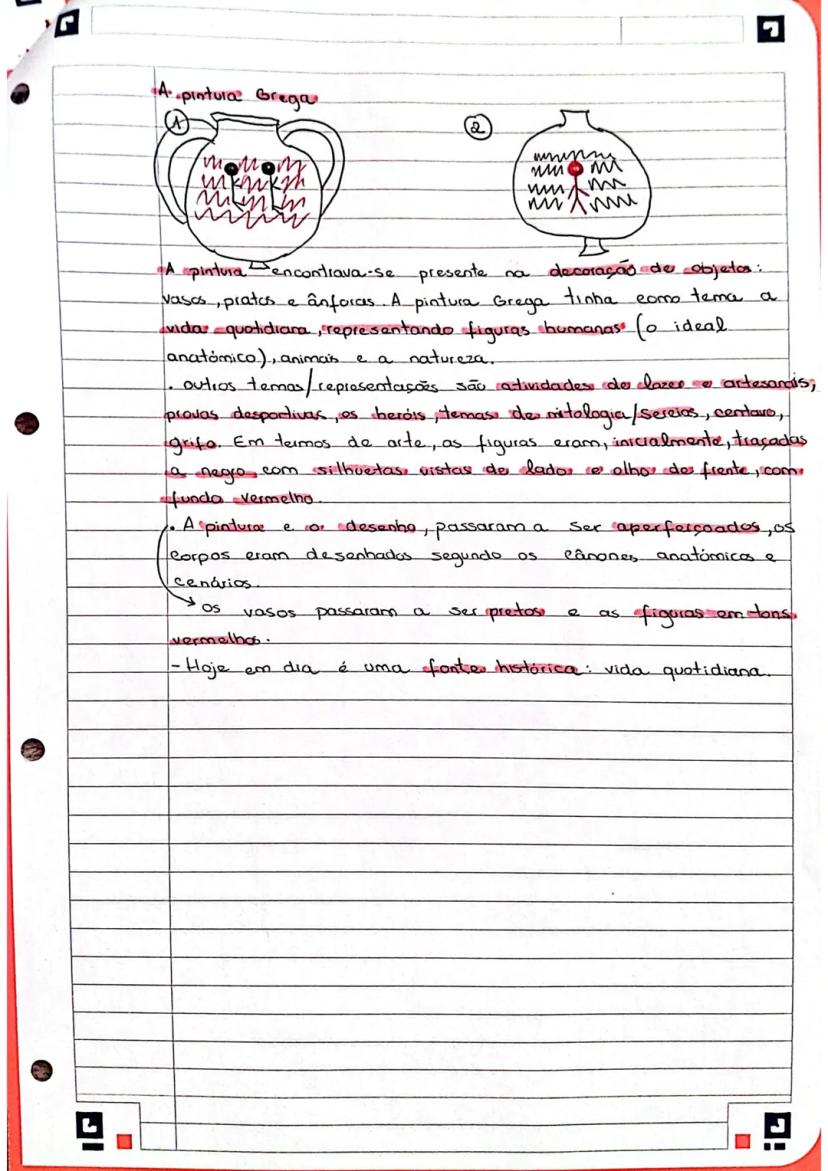 A pintura Grega
1
2
A pintura encontrava-se presente na decoração de objetos:
vasos, pratos e ânforas. A pintura Grega tinha como tema a
vida quotidiana, representando figuras humanas (o ideal
anatómico), animais e a natureza.
. outros temas/representações são atividades de lazer e artesanais,
provas desportivas, os heróis, temas de mitologia/sereias, centauro,
grifo. Em termos de arte, as figuras eram, inicialmente, traçadas
a negro com silhuetas vistas de lado e olho de frente, com
fundo vermelho.
. A pintura e o desenho, passaram a ser aperfeiçoados, os
corpos eram desenhados segundo os cânones anatómicos e
cenários.
os vasos passaram a ser pretos e as figuras em tons
vermelhos.
- Hoje em dia é uma fonte histórica: vida quotidiana.